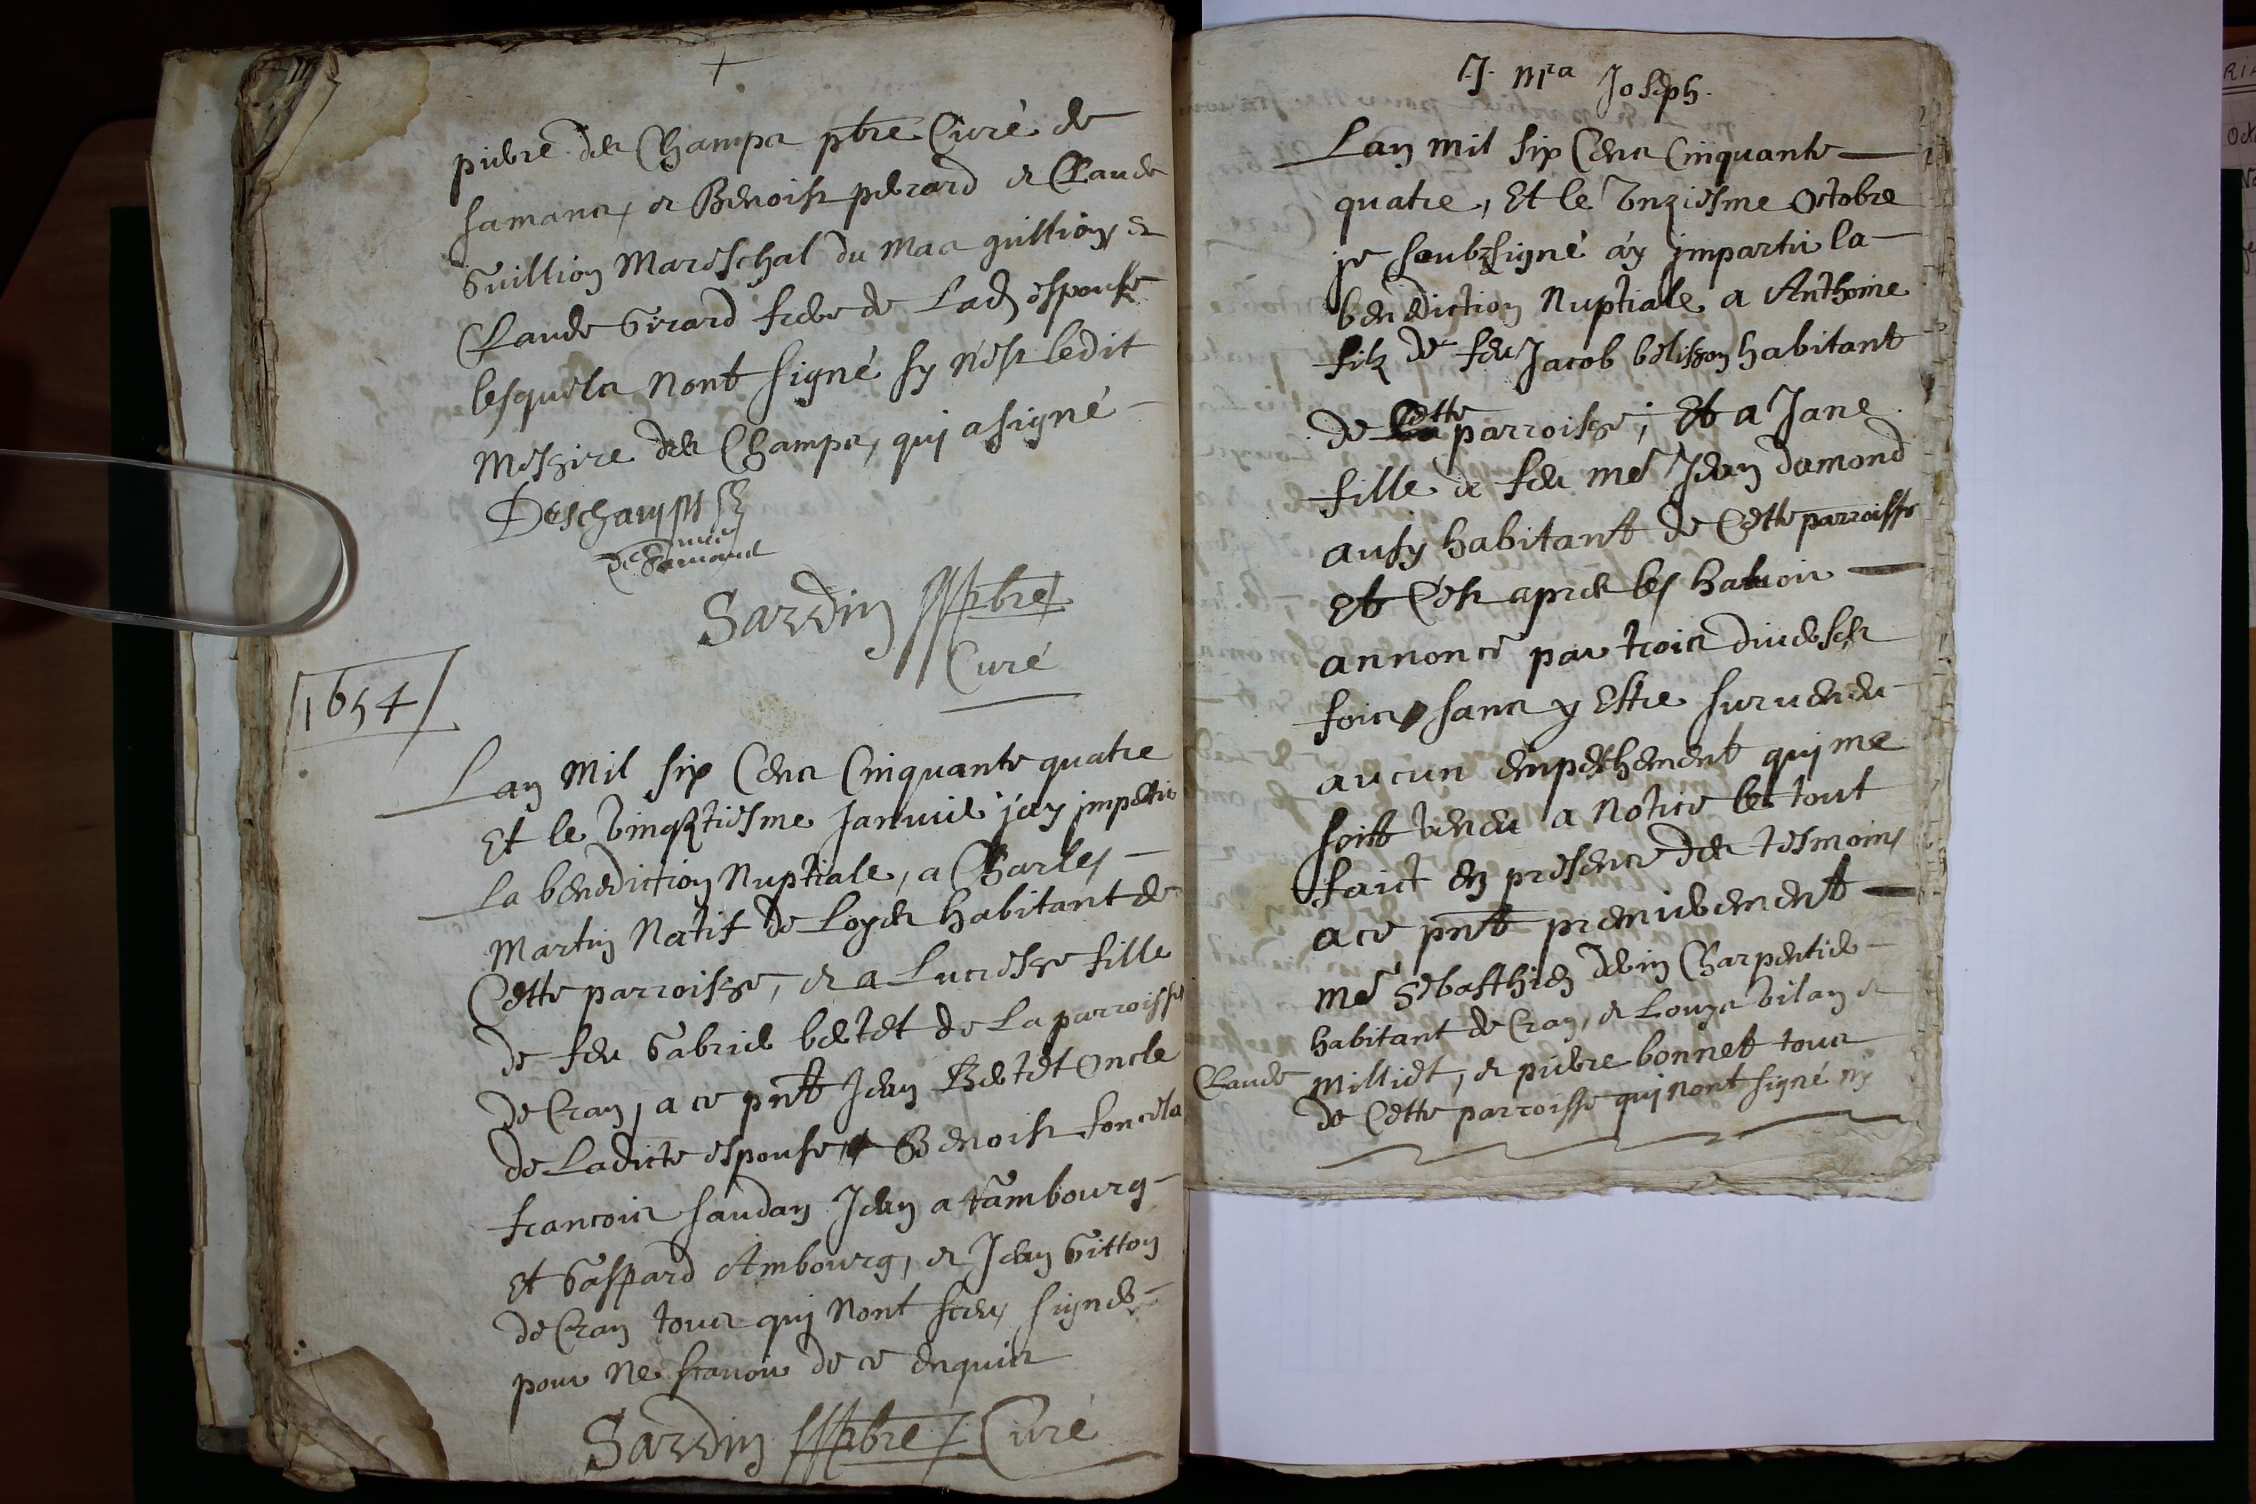 +
pierre des Champs pbre Curé de
Samans, et Benoist perard et Claude
Guillion Mareschal du Mas guillion et
Claude Girard frere de Lad espouse
lesquels nont signé sy nest ledit
Messire des Champs, qui a signé
Deschamps
curé
de Samans
Sardin pbre
Curé
1654
Lan mil six Cens Cinquante quatre
Et le vingtiesme Janvier j'ay imperti
La benediction Nuptiale, a Charles
Martin Natif de Loyes habitant de
Cette parroisse, et a Lucresse fille
de feu Gabriel bertet de La parroisse
de Cran, a ce pnt Jean Bertet oncle
de Ladicte espouse Benoist
francois saudan Jean a tambourg
et Gaspard Ambourg, et Jean Gitton
de Cran tous qui nont sceu signer
pour ne scavoir de ce enquis
Sardin pbre Curé
J. Mra Joseph.
Lan mil six Cens Cinquante
quatre, Et le unziesme Octobre
je soubzsigné ay imparti la
benediction Nuptiale a Anthoine
filz de feu Jacob belisson habitant
de Cette parroisse, Et a Jane
fille de feu me Jean damond
aussy habitant de Cette parroisse
Et C'est apres les havoir
annoncé par trois diverses
fois sans y Estre survenu
aucun empeschement qui me
soit venu a notice le tout
faict en presence des tesmoins
a ce pnt premierement
me Sebasthien devin Charpentier
habitant de Cran, et Louys vilan et
Claude Milliet, et pierre bonnet tous
de Cette parroisse qui nont signé ny